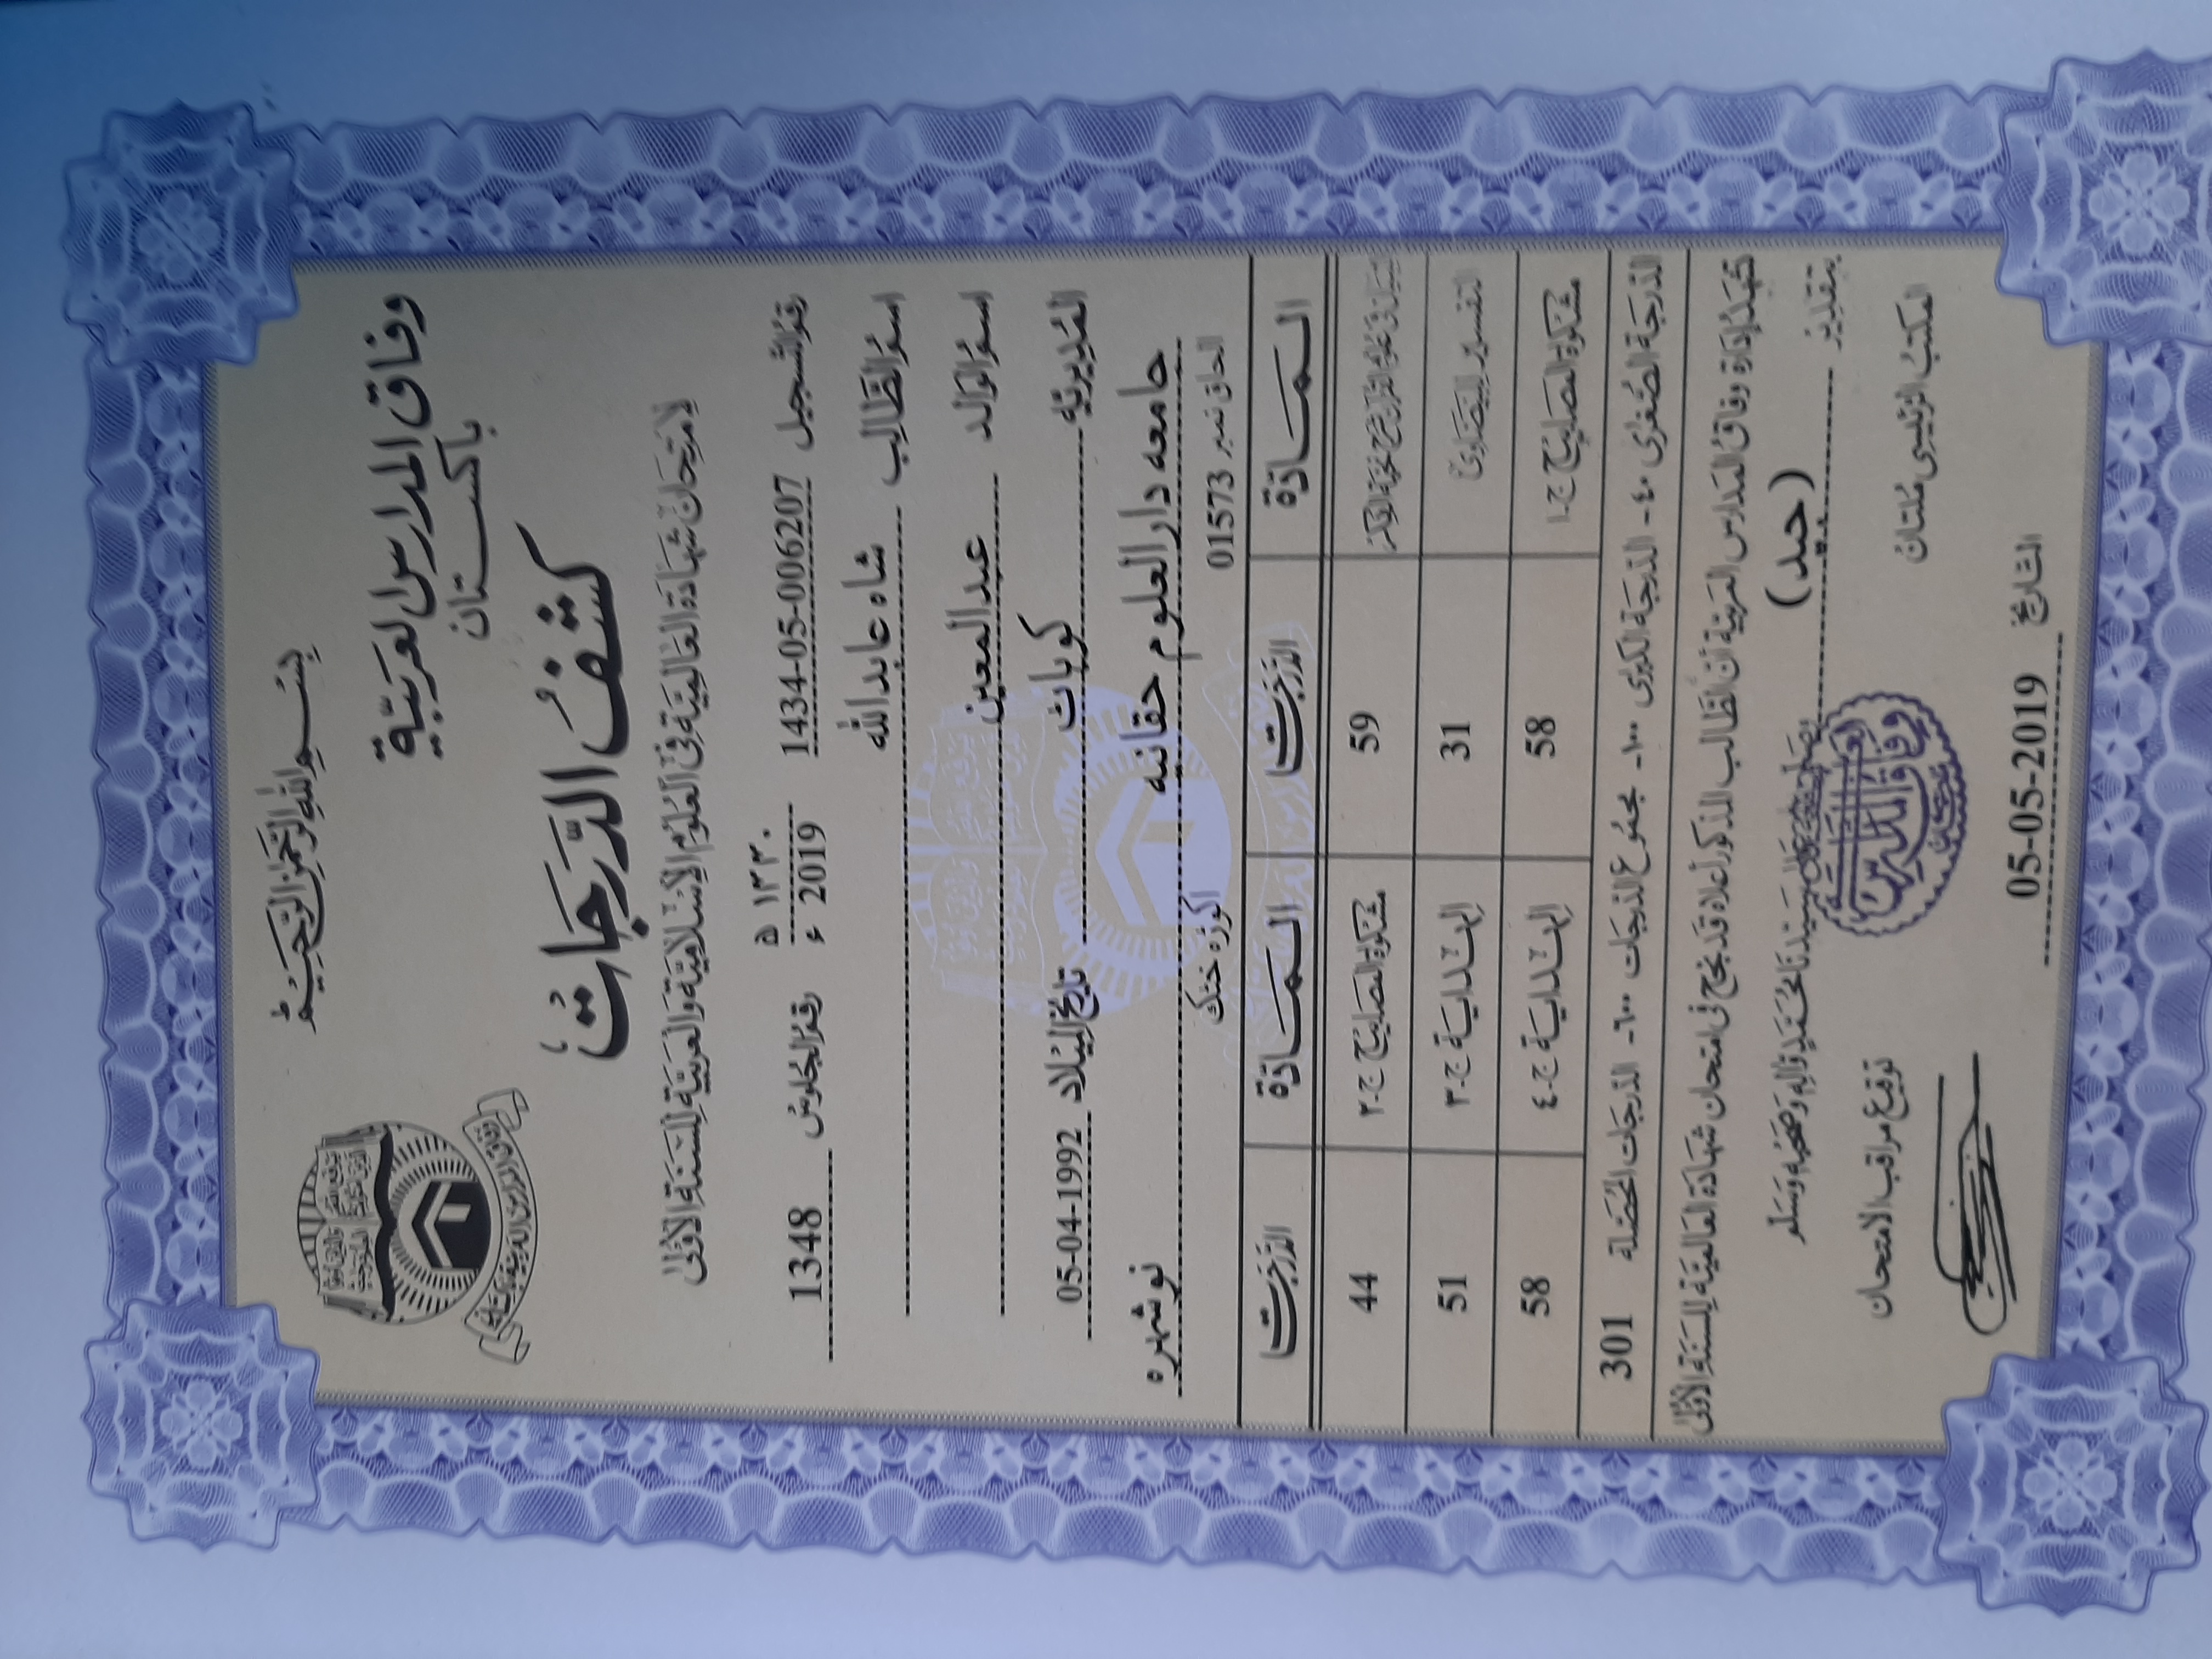 بسم الله الرحمن الرحيم
وفاق المدارس العربية
باكستان
كشف الدرجات
لامتحان شهادة العالمية في العلوم الإسلامية والعربية للسنة الأولى
رقم التسجيل 1434-05-006207 ١٤٤٠ ه 2019 ء رقم الجلوس 1348
اسم الطالب شاه عابد الله
اسم الوالد عبد المعين
المديرية كوہاٹ تاريخ الميلاد 05-04-1992
جامعه دار العلوم حقانيه اکوڑه خٹک نوشهره
الحاق نمبر 01573
المادة الدرجات المادة الدرجات
59 مشكوة المصابيح ج-٢ 44
التفسير للبيضاوي 31 الهداية ج-٣ 51
مشكوة المصابيح ج-١ 58 الهداية ج-٤ 58
الدرجة الصغرى ٤٠- الدرجة الكبرى ١٠٠- مجموع الدرجات ٦٠٠- الدرجات المحصلة 301
تشهد إدارة وفاق المدارس العربية أن الطالب المذكور أعلاه قد نجح في امتحان شهادة العالمية للسنة الأولى
بتقدير (جيد) سيدنا محمد وآله وصحبه وسلم
المكتب الرئيسي ملتان
توقيع مراقب الامتحان
التاريخ 05-05-2019